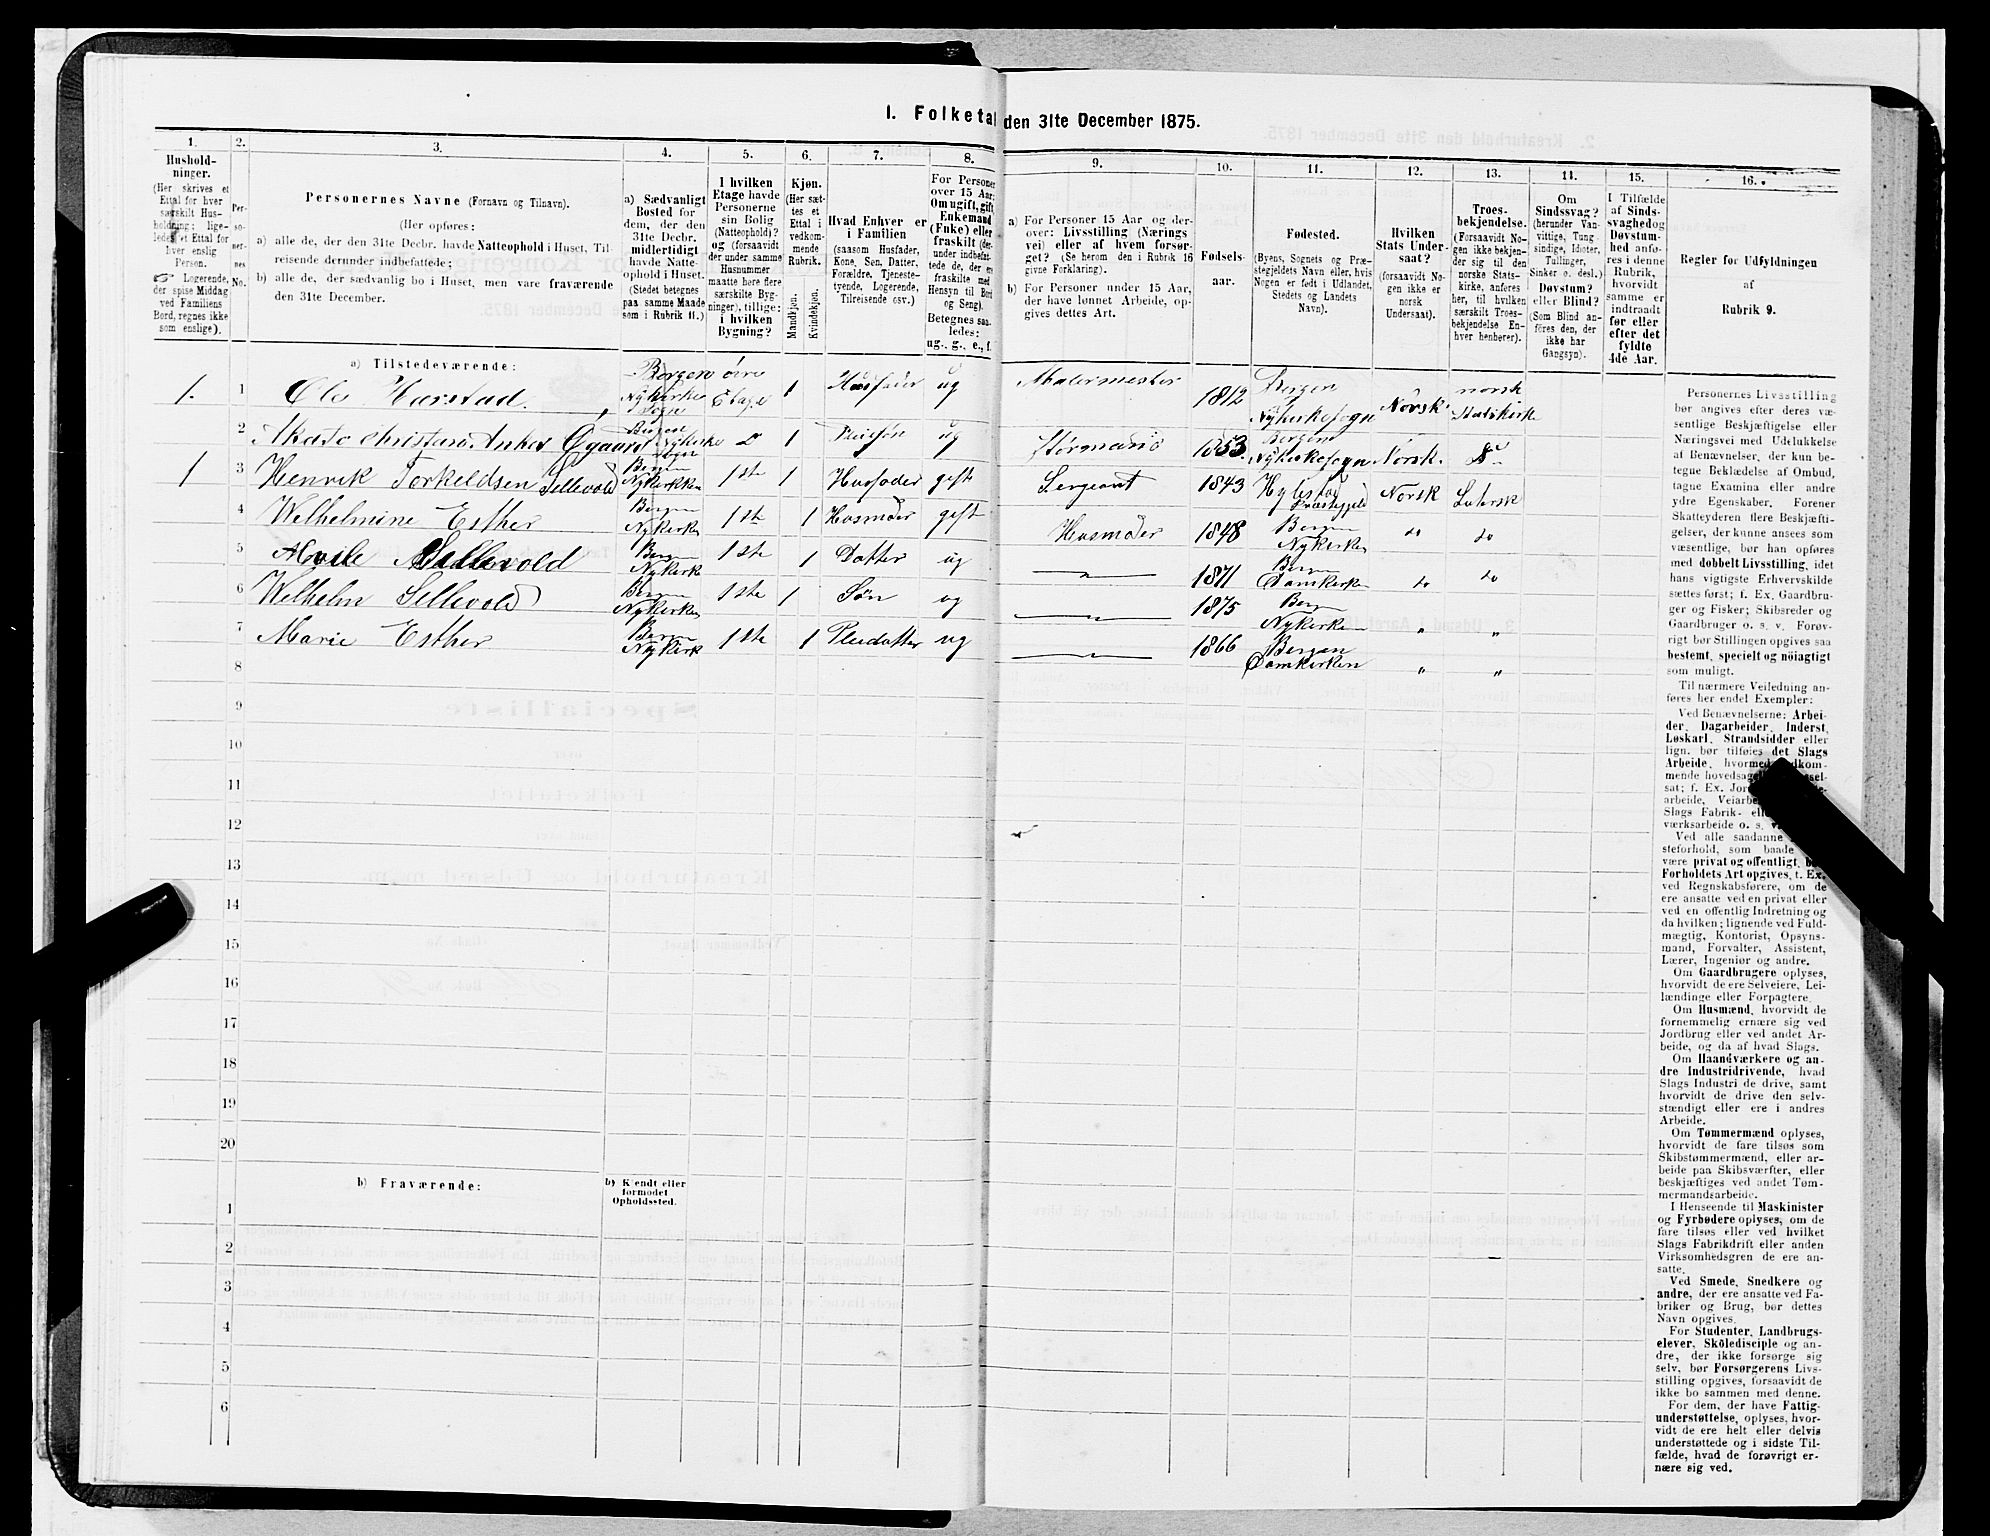 1. Folketal den 31te December 1875.
1.
Hushold-
ninger.
(Her skrives et
Ettal for hver
særskilt Hus-
holdning; lige-
ledes et Ettal for
hver enslig
Person.
Logerende,
der spise Middag
ved Familiens
Bord, regnes ikke
som enslige).
2.
Per-
so-
ner-
nes
No.
3.
Personernes Navne (Fornavn og Tilnavn).
(Her opføres:
a) alle de, der den 31te Decbr. havde Natteophold i Huset, Til-
reisende derunder indbefattede;
b) alle de, der sædvanlig bo i Huset, men vare fraværende
den 31te December.
4.
a) Sædvanligt
Bosted for
dem, der den
31te Decbr.
midlertidigt
havde Natte-
ophold i Huset.
(Stedet betegnes
paa samme Maade
som i Rubrik 11.)
5.
I hvilken
Etage havde
Personerne
sin Bolig
(Natteophold)?
og (forsaavidt
der under samme
Husnummer
maatte høre flere
særskilte Byg-
ninger), tillige:
i hvilken
Bygning?
6.
Kjøn.
(Her sæt-
tes et
Ettal i
vedkom-
mende
Rubrik.
Mandkjøn.
Kvindekjøn.
7.
Hvad Enhver er
i Familien
(saasom Husfader,
Kone, Søn, Datter,
Forældre, Tjeneste-
tyende, Logerende,
Tilreisende osv.)
8.
For Personer
over 15 Aar:
Om ugift, gift,
Enkemand
(Enke) eller
fraskilt (der-
under indbefat-
tede de, der ere
fraskilte med
Hensyn til Bord
og Seng).
Betegnes saa-
ledes:
ug., g., e., f.
9.
a) For Personer 15 Aar og der-
over: Livsstilling (Nærings-
vei) eller af hvem forsør-
get? (Se herom den i Rubrik 16
givne Forklaring).
b) For Personer under 15 Aar,
der have lønnet Arbeide, op-
gives dettes Art.
10.
Fødsels-
aar.
11.
Fødested.
(Byens, Sognets og Præ-
stegjeldets Navn eller, hvis
Nogen er født i Udlandet,
Stedets og Landets
Navn).
12.
Hvilken
Stats Under-
saat?
(forsaavidt No-
gen ikke er
norsk
Undersaat).
13.
Troes-
bekjendelse.
(Forsaavidt No-
gen ikke bekjen-
der sig til den
norske Stats-
kirke, anføres
her, til hvilken
særskilt Troes-
bekjendelse En-
hver henhører).
14.
Om
Sindssvag?
(herunder Van-
vittige, Tung-
sindige, Idioter,
Tullinger,
Sinker o. desl.)
Døvstum?
eller Blind?
(Som Blind an-
føres den, der
ikke har
Gangsyn).
15.
I Tilfælde
af Sinds-
svaghed og
Døvstum-
hed anfø-
res i denne
Rubrik,
hvorvidt
samme er
indtraadt
før eller
efter det
fyldte
4de Aar.
16.
Regler for Udfyldningen
af
Rubrik 9.
a) Tilstedeværende:
1. 1 Ole Harstad. Bergen Nykirke Sogn øvre Etage 1 Husfader ug Malermester 1812 Bergen Nykirkesogn Norsk norsk Statskirk
2 Christian Anker Bergen Nykirke Sogn do 1 Pleisøn ug 1853. Bergen Nykirkesogn Norsk. do
1 3 Henrik Torkeldsen Sellevold Bergen Nykirken 1ste 1 Husfader gift Sergeant 1843 Hylestad Præstegjeld Norsk Lutersk
4 Welhelmine Esther Bergen Nykirke 1ste 1 Husmoder gift Husmoder 1848 Bergen Nykirken do do
5 Sellevold Bergen Nykirk 1ste 1 Datter ug 1871 Bergen Domkirken do do
6 Welhelm Sellevold Bergen Nykirken 1ste 1 Søn ug 1875 Bergen Nykirken " "
7 Marie Esther Bergen Nykirk 1ste 1 Pleidatter ug 1866 Bergen Domkirken " "
8
9
10
11
12
13
14
15
16
17
18
19
20
b) Fraværende:
b) Kjendt eller
formodet
Opholdssted.
1
2
3
4
5
6
Personernes Livsstilling
bør angives efter deres væ-
sentlige Beskjæftigelse eller
Næringsvei med Udelukkelse
af Benævnelser, der kun be-
tegne Beklædelse af Ombud,
tagne Examina eller andre
ydre Egenskaber. Forener
Skatteyderen flere Beskjæfti-
gelser, der kunne ansees som
væsentlige, bør han opføres
med dobbelt Livsstilling, idet
hans vigtigste Erhvervskilde
sættes først; f. Ex. Gaardbru-
ger og Fisker; Skibsreder og
Gaardbruger o. s. v. Forøv-
rigt bør Stillingen opgives saa
bestemt, specielt og nøiagtigt
som muligt.
Til nærmere Veiledning an-
føres her endel Exempler:
Ved Benævnelserne: Arbei-
der, Dagarbeider, Inderst,
Løskarl, Strandsidder eller
lign. bør tilføies det Slags
Arbeide, hvormed
mende
sat; f. Ex.
arbeide,
Slags Fabrik-
værksarbeide o. s. v.
Ved alle saadanne
steforhold, som baade
være privat og offentligt, bør
Forholdets Art opgives, t. Ex.
ved Regnskabsførere, om de
ere ansatte ved en privat eller
ved en offentlig Indretning og
da hvilken; lignende ved Fuld-
mægtig, Kontorist, Opsyns-
mand, Forvalter, Assistent,
Lærer, Ingeniør og andre.
Om Gaardbrugere oplyses,
hvorvidt de ere Selveiere, Lei-
lændinge eller Forpagtere.
Om Husmænd, hvorvidt de
fornemmelig ernære sig ved
Jordbrug eller ved andet Ar-
beide, og da af hvad Slags.
Om Haandværkere og an-
dre Industridrivende, hvad
Slags Industri de drive, samt
hvorvidt de drive den selv-
stændigt eller ere i andres
Arbeide.
Om Tømmermænd oplyses,
hvorvidt de fare tilsøs som
Skibstømmermænd, eller ar-
beide paa Skibsværfter, eller
beskjæftiges ved andet Tøm-
mermandsarbeide.
I Henseende til Maskinister
og Fyrbødere oplyses, om de
fare tilsøs eller ved hvilket
Slags Fabrikdrift eller anden
Virksomhedsgren de ere an-
satte.
Ved Smede, Snedkere og
andre, der ere ansatte ved Fa-
briker og Brug, bør dettes
Navn opgives.
For Studenter, Landbrugs-
elever, Skoledisciple og an-
dre, der ikke forsørge sig
selv, bør Forsørgerens Livs-
stilling opgives, forsaavidt de
ikke bo sammen med denne.
For dem, der have Fattig-
understøttelse, oplyses, hvor-
vidt de ere helt eller delvis
understøttede og i sidste Til-
fælde, hvad de forøvrigt er-
nære sig ved.